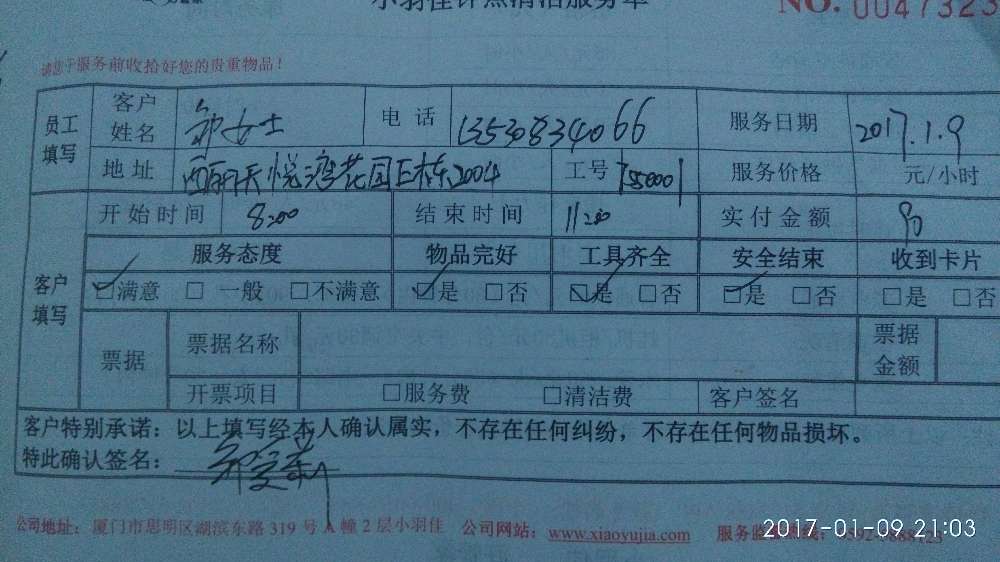 小羽佳钟点清洁服务单
NO. 0047323
请您于服务前收拾好您的贵重物品！
员工填写 客户姓名 郭女士 电话 13530834066 服务日期 2017.1.9
地址 西丽天悦湾花园 栋2004 工号 服务价格 元/小时
开始时间 8:00 结束时间 11:00 实付金额
客户填写 服务态度 物品完好 工具齐全 安全结束 收到卡片
☑满意 □一般 □不满意 ☑是 □否 ☑是 □否 ☑是 □否 □是 □否
票据 票据名称 票据金额
开票项目 □服务费 □清洁费 客户签名
客户特别承诺：以上填写经本人确认属实，不存在任何纠纷，不存在任何物品损坏。
特此确认签名：
公司地址：厦门市思明区湖滨东路319号A幢2层小羽佳 公司网站：www.xiaoyujia.com 服务监督热线：
2017-01-09 21:03